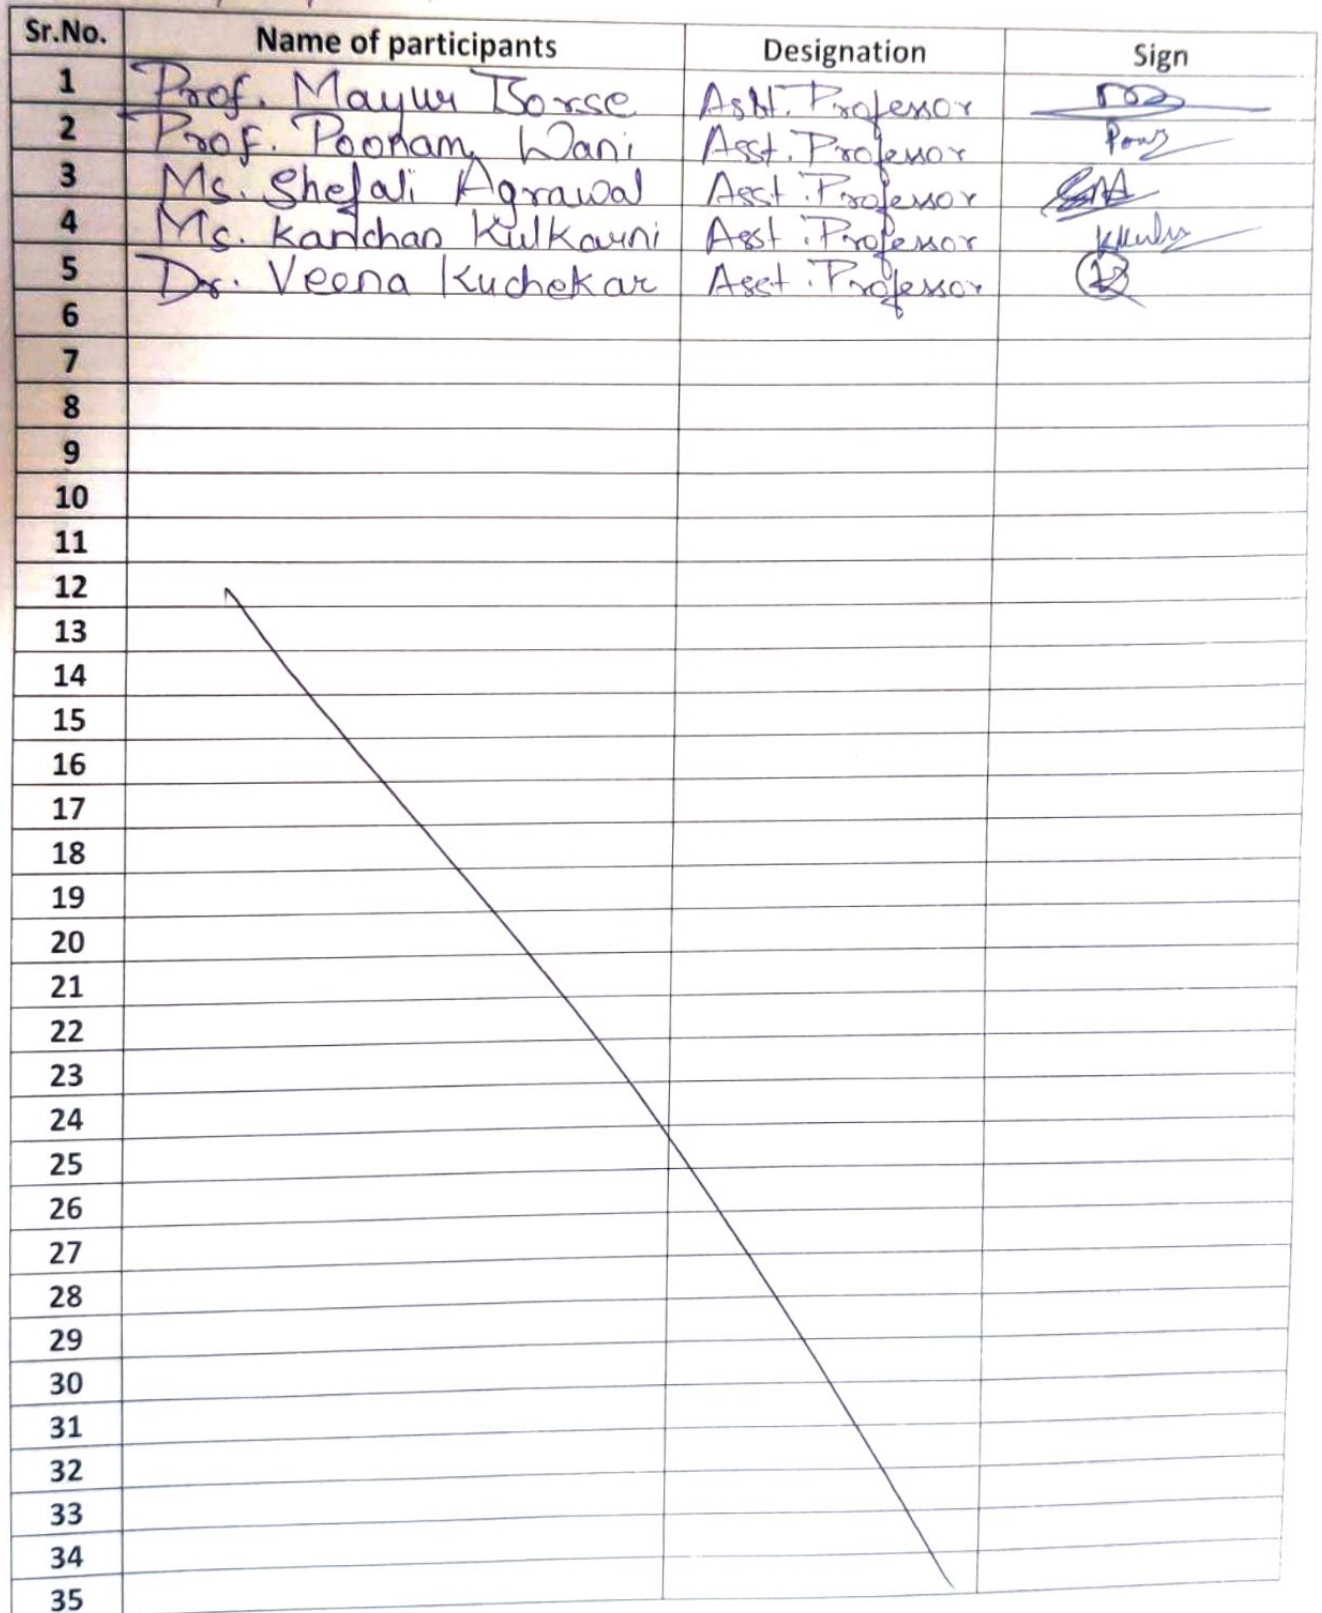 Sr.No. Name of participants Designation Sign
1 Prof. Mayur Borse Asst. Professor
2 Prof. Poonam Wani Asst. Professor
3 Ms. Shefali Agrawal Asst. Professor
4 Ms. Kanchan Kulkarni Asst. Professor
5 Dr. Veena Kuchekar Asst. Professor
6
7
8
9
10
11
12
13
14
15
16
17
18
19
20
21
22
23
24
25
26
27
28
29
30
31
32
33
34
35